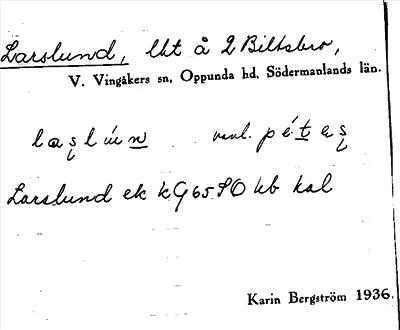 Larslund, lht å 2 Biltsbro,
V. Vingåkers sn, Oppunda hd, Södermanlands län.
vanl.
Larslund ek kG 65 SO kb kal
Karin Bergström 1936.